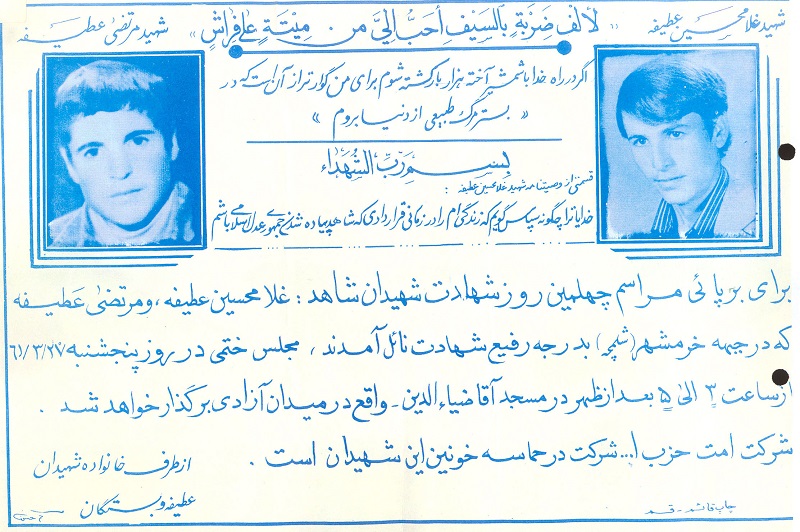 شهید غلامحسین عطیفه
«لألف ضربةٍ بالسیف أحبّ الیَّ من میتةٍ علی فراشٍ»
شهید مرتضی عطیفه
اگر در راه خدا با شمشیر آخته هزار بار کشته شوم برای من گواراتر از آن است که در
بستر مرگ طبیعی از دنیا بروم »
بسم رب الشهداء
قسمتی از وصیتنامه شهید غلامحسین عطیفه :
خدایا ترا چگونه سپاس گویم که زندگی‌ام را در زمانی قرار دادی که شاهد پیاده شدن جمهوری عدل اسلامی باشم
برای برپائی مراسم چهلمین روز شهادت شهیدان شاهد : غلامحسین عطیفه ، و مرتضی عطیفه
که در جبهه خرمشهر (شلمچه) بدرجه رفیع شهادت نائل آمدند ، مجلس ختمی در روز پنجشنبه ۶۱/۳/۲۷
از ساعت ۳ الی ۵ بعد از ظهر در مسجد آقا ضیاءالدین - واقع در میدان آزادی برگذار خواهد شد .
شرکت امت حزب ا... شرکت در حماسه خونین این شهیدان است .
از طرف خانواده شهیدان
عطیفه و بستگان
چاپ قائم - قم